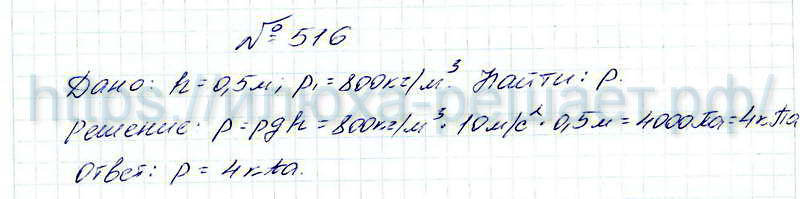 № 516
Дано: h = 0,5 м; ρ₁ = 800 кг/м³. Найти: p.
Решение: p = ρgh = 800 кг/м³ · 10 м/с² · 0,5 м = 4000 Па = 4 кПа
Ответ: p = 4 кПа.